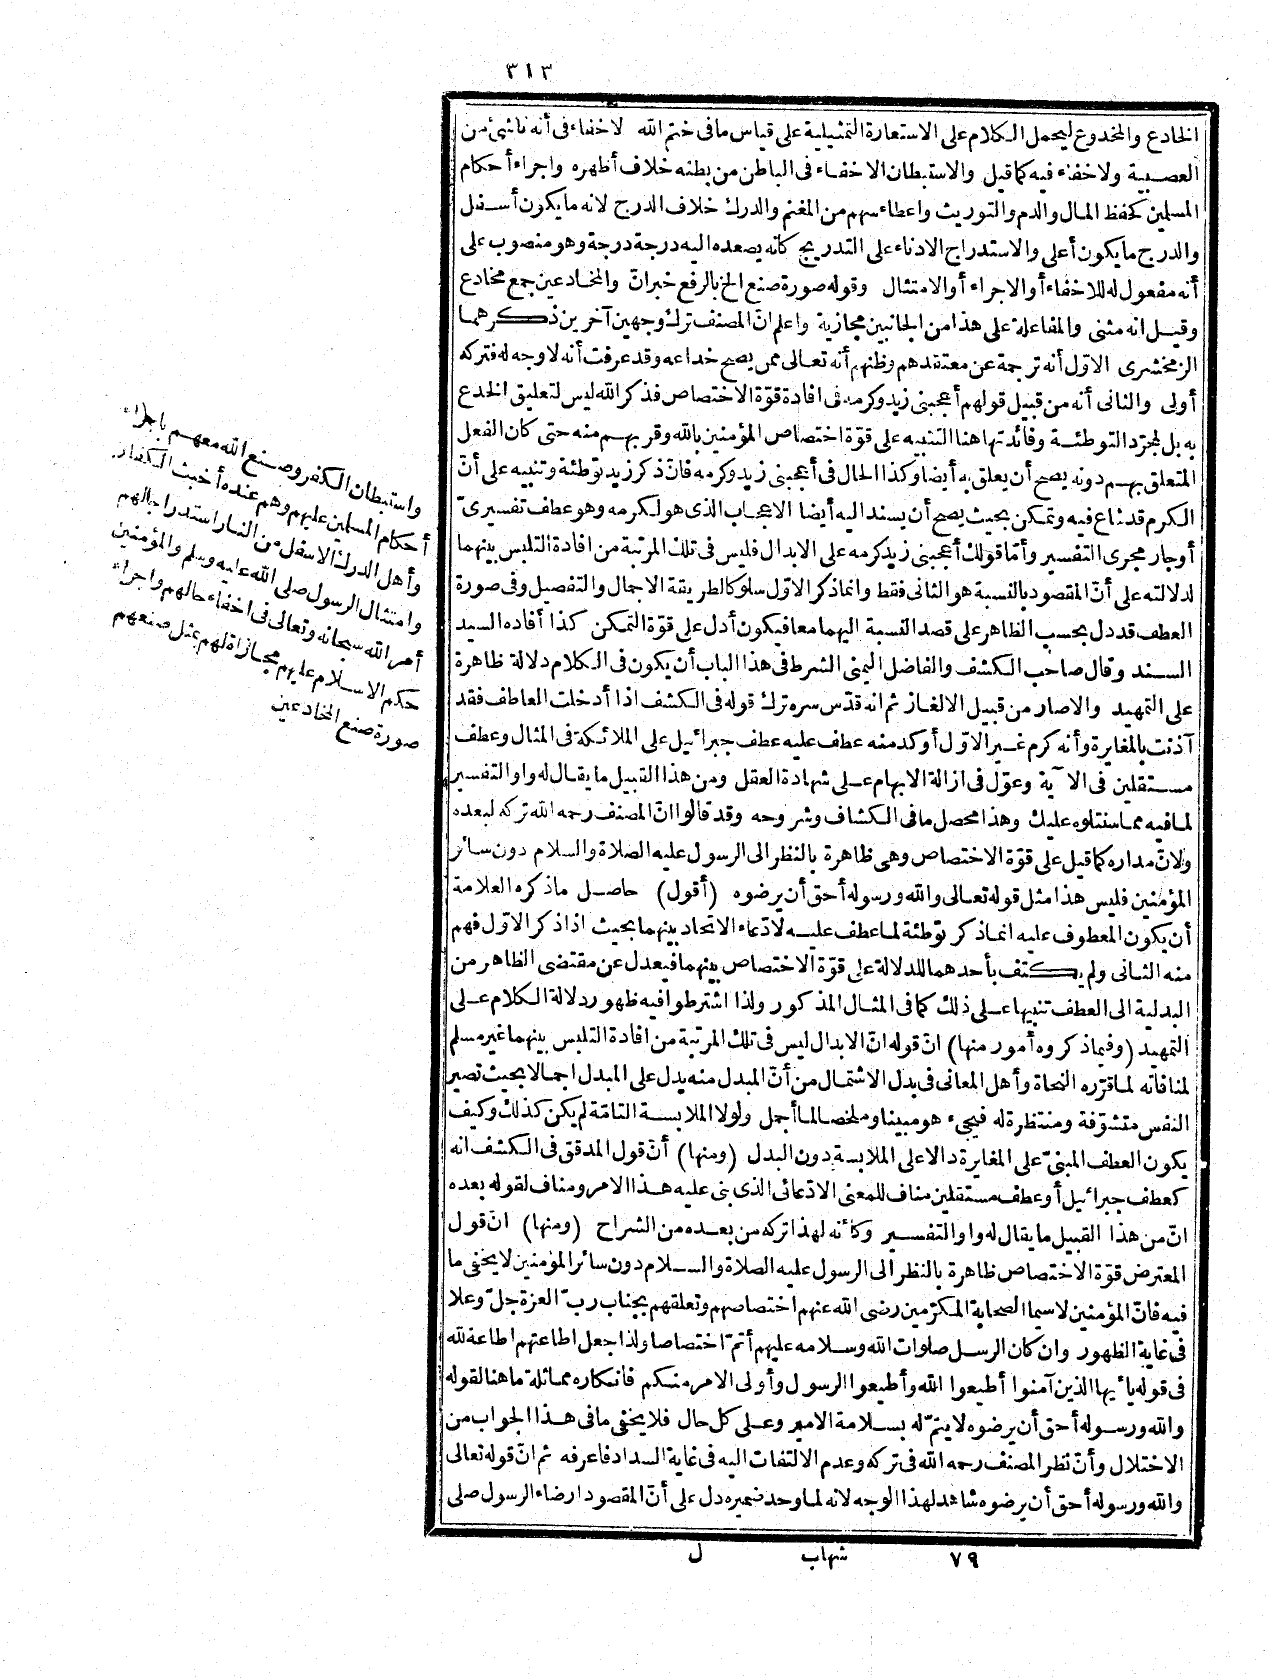 ٣١٣
الخادع والمخدوع ليحمل الكلام على الاستعارة التمثيلية على قياس ما فى ختم الله لا خفاء فى أنه ناشئ من
العصبية ولا خفاء فيه كما قيل والاستبطان الاخفاء فى الباطن من بطنه خلاف أظهره واجراء أحكام
المسلمين كحفظ المال والدم والتوريث واعطاء سهم من المغنم والدرك خلاف الدرج لانه ما يكون أسفل
والدرج ما يكون أعلى والاستدراج الادناء على التدريج كأنه يصعده اليه درجة درجة وهو منصوب على
أنه مفعول له للاخفاء أو الاجراء أو الامتثال وقوله صورة صنع الخ بالرفع خبرانّ والمخادعين جمع مخادع
وقيل انه مثنى والمفاعلة على هذا من الجانبين مجازية واعلم انّ المصنف ترك وجهين آخرين ذكرهما
الزمخشرى الاوّل أنه ترجمة عن معتقدهم وظنهم أنه تعالى ممن يصح خداعه وقد عرفت أنه لا وجه له فتركه
أولى والثانى أنه من قبيل قولهم أعجبنى زيد وكرمه فى افادة قوّة الاختصاص فذكر الله ليس لتعليق الخدع
به بل لمجرّد التوطئة وفائدتها هنا التنبيه على قوّة اختصاص المؤمنين بالله وقربهم منه حتى كان الفعل
المتعلق بهم دونه يصح أن يعلق به أيضا وكذا الحال فى أعجبنى زيد وكرمه فانّ ذكر زيد توطئة وتنبيه على أنّ
الكرم قد شاع فيه وتمكن بحيث يصح أن يسند اليه أيضا الاعجاب الذى هو لكرمه وهو عطف تفسيرىّ
أو جار مجرى التفسير وأمّا قولك أعجبنى زيد كرمه على الابدال فليس فى تلك المرتبة من افادة التلبس بينهما
لدلالته على أنّ المقصود بالنسبة هو الثانى فقط وانما ذكر الاوّل سلوكا لطريقة الاجمال والتفصيل وفى صورة
العطف قد دل بحسب الظاهر على قصد النسبة اليهما معا فيكون أدل على قوّة التمكن كذا أفاده السيد
السند وقال صاحب الكشف والفاضل اليمنى الشرط فى هذا الباب أن يكون فى الكلام دلالة ظاهرة
على التمهيد والا صار من قبيل الالغاز ثم انه قدّس سره ترك قوله فى الكشف اذا أدخلت العاطف فقد
آذنت بالمغايرة وأنه كرم غير الاوّل أوكد منه عطف عليه عطف جبرائيل على الملائكة فى المثال وعطف
مستقلين فى الآية وعوّل فى ازالة الابهام على شهادة العقل ومن هذا القبيل ما يقال له واو التفسير
لما فيه مما سنتلوه عليك وهذا محصل ما فى الكشاف وشروحه وقد قالوا انّ المصنف رحمه الله تركه لبعده
ولانّ مداره كما قيل على قوّة الاختصاص وهى ظاهرة بالنظر الى الرسول عليه الصلاة والسلام دون سائر
المؤمنين فليس هذا مثل قوله تعالى والله ورسوله أحق أن يرضوه (أقول) حاصل ماذكره العلامة
أن يكون المعطوف عليه انما ذكر توطئة لما عطف عليه لادّعاء الاتحاد بينهما بحيث اذا ذكر الاوّل فهم
منه الثانى ولم يكتف بأحدهما للدلالة على قوّة الاختصاص بينهما فيعدل عن مقتضى الظاهر من
البدلية الى العطف تنبيها على ذلك كما فى المثال المذكور ولذا اشترطوا فيه ظهور دلالة الكلام على
التمهيد (وفيما ذكروه أمور منها) انّ قوله انّ الابدال ليس فى تلك المرتبة من افادة التلبس بينهما غير مسلم
لمنافاته لما قرّره النحاة وأهل المعانى فى بدل الاشتمال من أنّ المبدل منه يدل على المبدل اجمالا بحيث تصير
النفس متشوّقة ومنتظرة له فيجىء هو مبينا وملخصا لما أجمل ولولا الملابسة التامّة لم يكن كذلك وكيف
يكون العطف المبنىّ على المغايرة دالا على الملابسة دون البدل (ومنها) أنّ قول المدقق فى الكشف انه
كعطف جبرائيل أو عطف مستقلين مناف للمعنى الادّعائى الذى بنى عليه هذا الامر ومناف لقوله بعده
انّ من هذا القبيل ما يقال له واو التفسير وكأنه لهذا تركه من بعده من الشراح (ومنها) انّ قول
المعترض قوّة الاختصاص ظاهرة بالنظر الى الرسول عليه الصلاة والسلام دون سائر المؤمنين لا يخفى ما
فيه فانّ المؤمنين لاسيما الصحابة المكرّمين رضى الله عنهم اختصاصهم وتعلقهم بجناب ربّ العزة جلّ وعلا
فى غاية الظهور وان كان الرسل صلوات الله وسلامه عليهم أتمّ اختصاصا ولذا جعل اطاعتهم اطاعة لله
فى قوله يا أيها الذين آمنوا أطيعوا الله وأطيعوا الرسول وأولى الامر منكم فانكاره مماثلة ما هنا لقوله
والله ورسوله أحق أن يرضوه لا يتمّ له بسلامة الامير وعلى كل حال فلا يخفى ما فى هذا الجواب من
الاختلال وأنّ نظر المصنف رحمه الله فى تركه وعدم الالتفات اليه فى غاية السداد فاعرفه ثم انّ قوله تعالى
والله ورسوله أحق أن يرضوه شاهد لهذا الوجه لانه لما وحد ضميره دل على أنّ المقصود ارضاء الرسول صلى
واستبطان الكفر وصنع الله معهم باجراء
أحكام المسلمين عليهم وهم عنده أخبث الكفار
وأهل الدرك الاسفل من النار استدراجا لهم
وامتثال الرسول صلى الله عليه وسلم والمؤمنين
أمر الله سبحانه وتعالى فى اخفاء حالهم واجراء
حكم الاسلام عليهم مجازاة لهم بمثل صنعهم
صورة صنع المخادعين
٧٩ شهاب ل